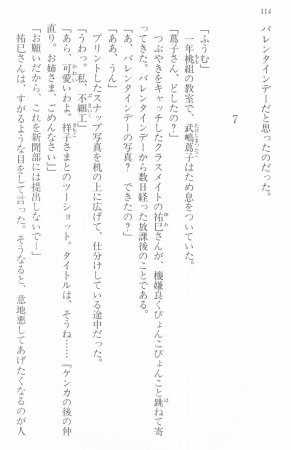 114
バレンタインデーだと思ったのだった。
7
「ふうむ」
一年桃組の教室で、武嶋蔦子はため息をついていた。
「蔦子さん、どしたの？」
つぶやきをキャッチしたクラスメイトの祐巳さんが、機嫌良くぴょんぴょこと跳ねて寄
ってきた。バレンタインデーから数日経った放課後のことである。
「あ、バレンタインデーの写真？　できたの？」
「ああ、うん」
プリントしたスナップ写真を机の上に広げて、仕分けしている途中だった。
「うわっ。私、不細工」
「あら、可愛いわよ。祥子さまとのツーショット。タイトルは、そうね……『ケンカの後の仲
直り。お姉さま、ごめんなさい』」
「お願いだから、これを新聞部には提出しないでー」
祐巳さんは、すがるような目をして言った。そうなると、意地悪してあげたくなるのが人